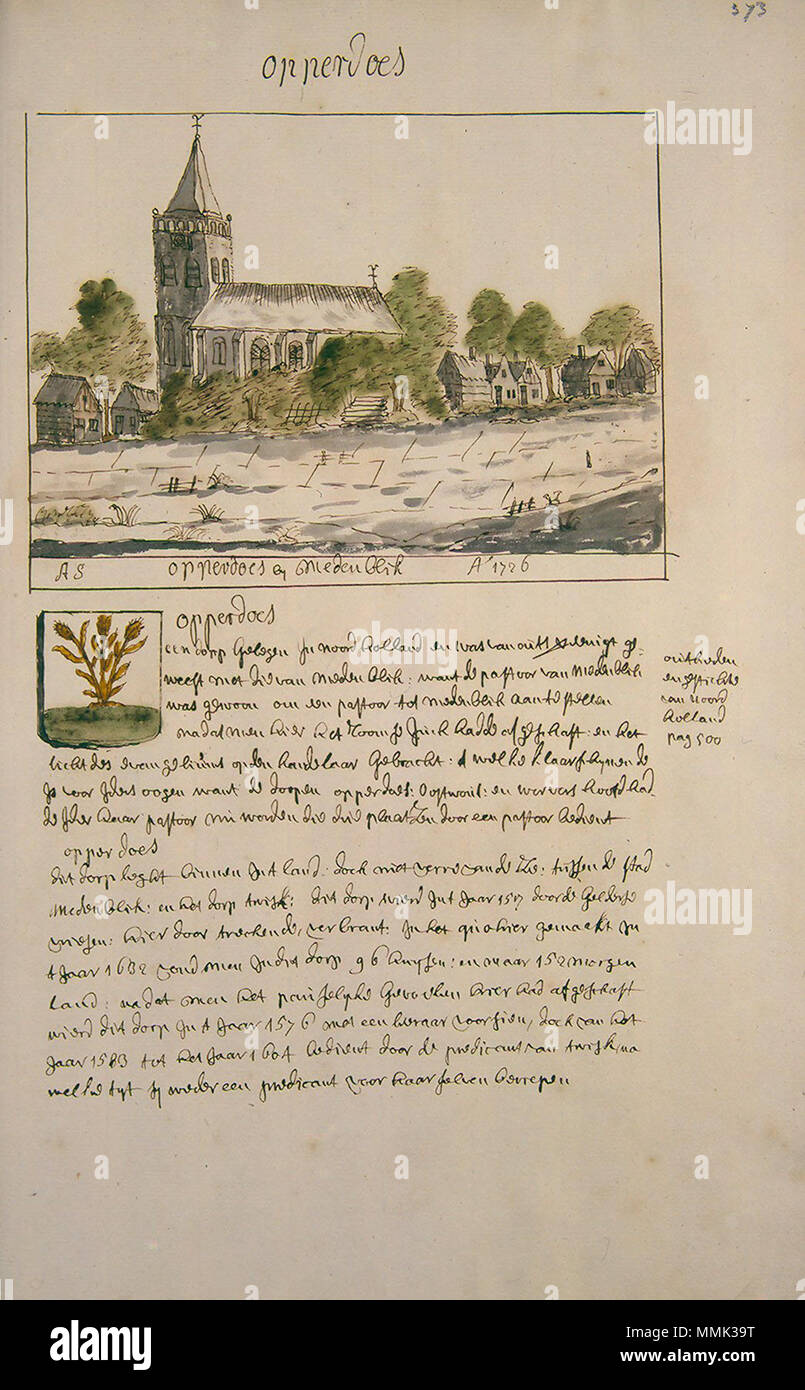 373
opperdoes
AS opperdoes bij Medenblik A° 1726
opperdoes
een dorp gelegen in noord holland en was van outs ge-
weest met die van Medenblik: want de pastoor van Medenblik
was gewoon om een pastoor tot Medenblik aan te stellen
nadat men hier het roomse juck hadde afgeschaft: en het
licht des evangeliums op den kandelaar gebracht: t welke klaarschijnende
is voor ider's oogen want de dorpen opperdoes: oostwout: en wervers hooft had-
de ider haar pastoor nu worden die drie plaatzen door een pastoor bedient
outheden
en gestichte
van noord
holland
pag 500
opperdoes
dit dorp leght binnen int land: doch niet verre van de zee: tussen de stad
Medenblik: en het dorp twisk: dit dorp wierd int jaar 1517 door de Gelderse
vriesen: hier door treckende, verbrant: in het quohier gemaekt in
t jaar 1632 vond men in dit dorp 96 huysen: en maar 152 morgen
land: nadat men het pauselyke gevoelen hier had afgeschaft
wierd dit dorp in t jaar 1576 met een leraar voorsien, doch van het
jaar 1583 tot het jaar 1604 bedient door de predicant van twisk, na
welke tyt sy weder een predicant voor haar selven beroepen
alamy
Image ID: MMK39T
www.alamy.com